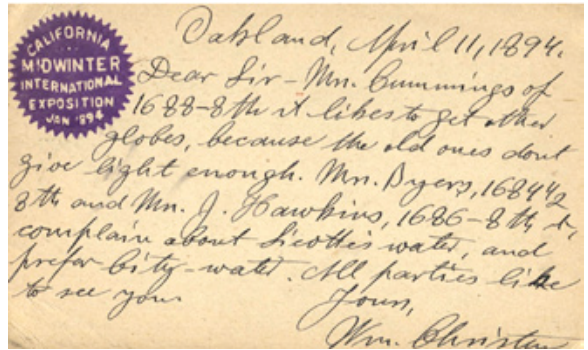 CALIFORNIA
MIDWINTER
INTERNATIONAL
EXPOSITION
JAN '94
Oakland, April 11, 1894.
Dear Sir - Mr. Cummings of
1688 - 8th st likes to get other
globes, because the old ones dont
give light enough. Mr. Byers, 1684 1/2
8th and Mr. J. Hawkins, 1686 - 8th st,
complain about water, and
prefer City-water. All parties like
to see you.
Yours,
Wm. Christen